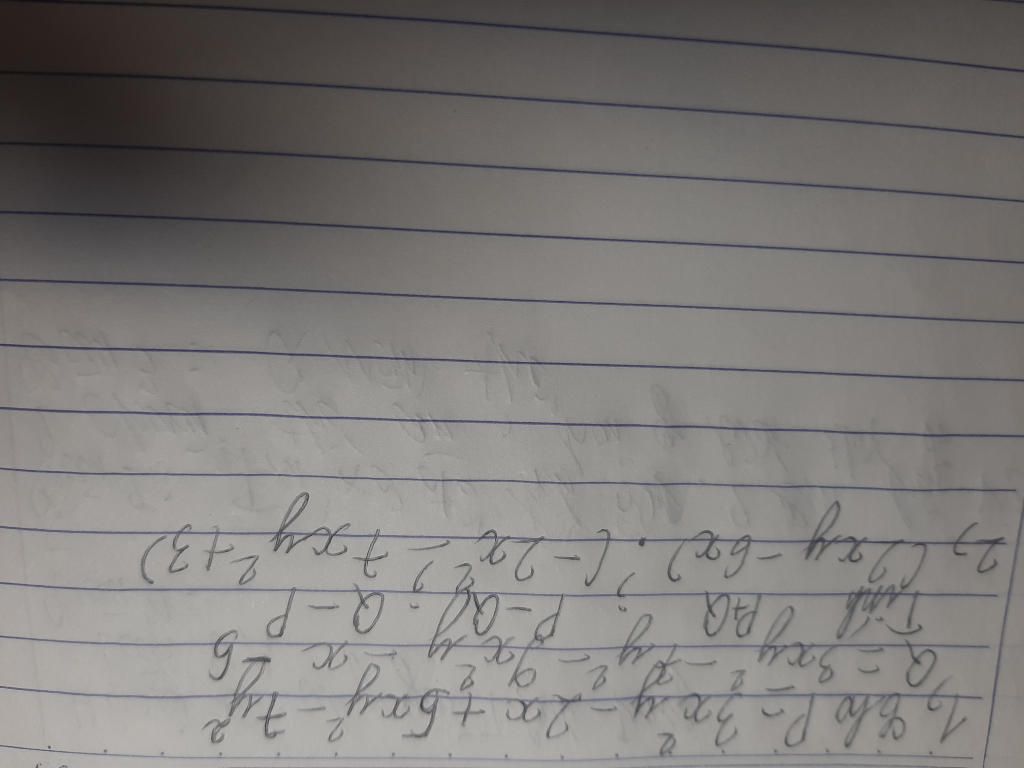 1, Cho P = 3x²y - 2x + 5xy² - 7y²
Q = 3xy² - 7y² - 9x²y - x - 5
Tính P+Q ; P - Q ; Q - P
2, (2xy - 6x) . (-2x² - 7xy² + 3)